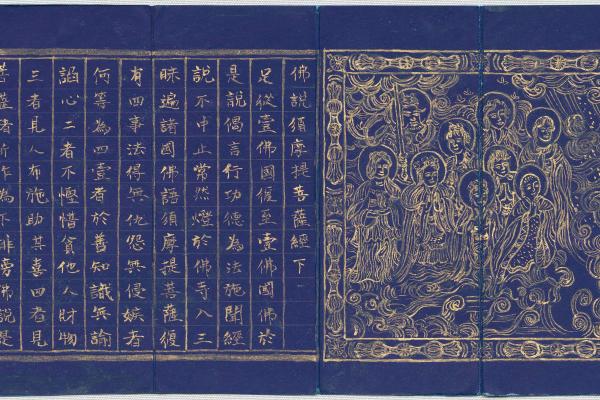 佛說須摩提菩薩經下
足從壹佛國復至壹佛國佛於
是說偈言行功德為法施開經
說不中止常然燈於佛寺入三
昧遍諸國佛語須摩提菩薩復
有四事法得無仇怨無侵嫉者
何等為四壹者於善知識無諭
謟心二者不慳惜貪他人財物
三者見人布施助其喜四者見
菩薩者所作為不誹謗佛說是